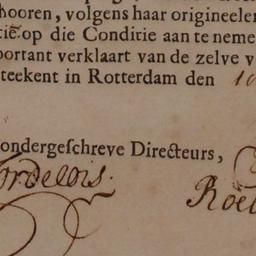 hooren, volgens haar origineele
tie op die Conditie aan te neme
portant verklaart van de zelve v
teekent in Rotterdam den 10
ondergeschreve Directeurs,